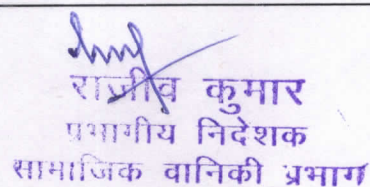 राजीव कुमार
प्रभागीय निदेशक
सामाजिक वानिकी प्रभाग